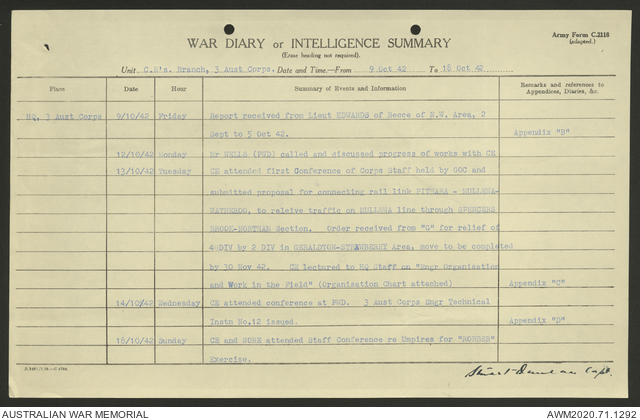 Army Form C.2118
(adapted.)
WAR DIARY or INTELLIGENCE SUMMARY
(Erase heading not required).
Unit C.E's. Branch, 3 Aust Corps. Date and Time.—From 9 Oct 42 To 18 Oct 42
Place Date Hour Summary of Events and Information Remarks and references to Appendices, Diaries, &c.
HQ, 3 Aust Corps 9/10/42 Friday Report received from Lieut EDWARDS of Recce of N.W. Area, 2
Sept to 5 Oct 42. Appendix "B"
12/10/42 Monday Mr WELLS (PWD) called and discussed progress of works with CE
13/10/42 Tuesday CE attended first Conference of Corps Staff held by GOC and
submitted proposal for connecting rail link PITHARA - MULLEWA-
to releive traffic on MULLEWA line through SPENCERS
BROOK-NORTHAM Section. Order received from "G" for relief of
4 DIV by 2 DIV in GERALDTON-STRAWBERRY Area, move to be completed
by 30 Nov 42. CE lectured to HQ Staff on "Engr Organisation
and Work in the Field" (Organisation Chart attached) Appendix "C"
14/10/42 Wednesday CE attended conference at PWD. 3 Aust Corps Engr Technical
Instn No.12 issued. Appendix "D"
18/10/42 Sunday CE and SORE attended Staff Conference re Umpires for "ROBBER"
Exercise.
Capt.
AUSTRALIAN WAR MEMORIAL
AWM2020.71.1292